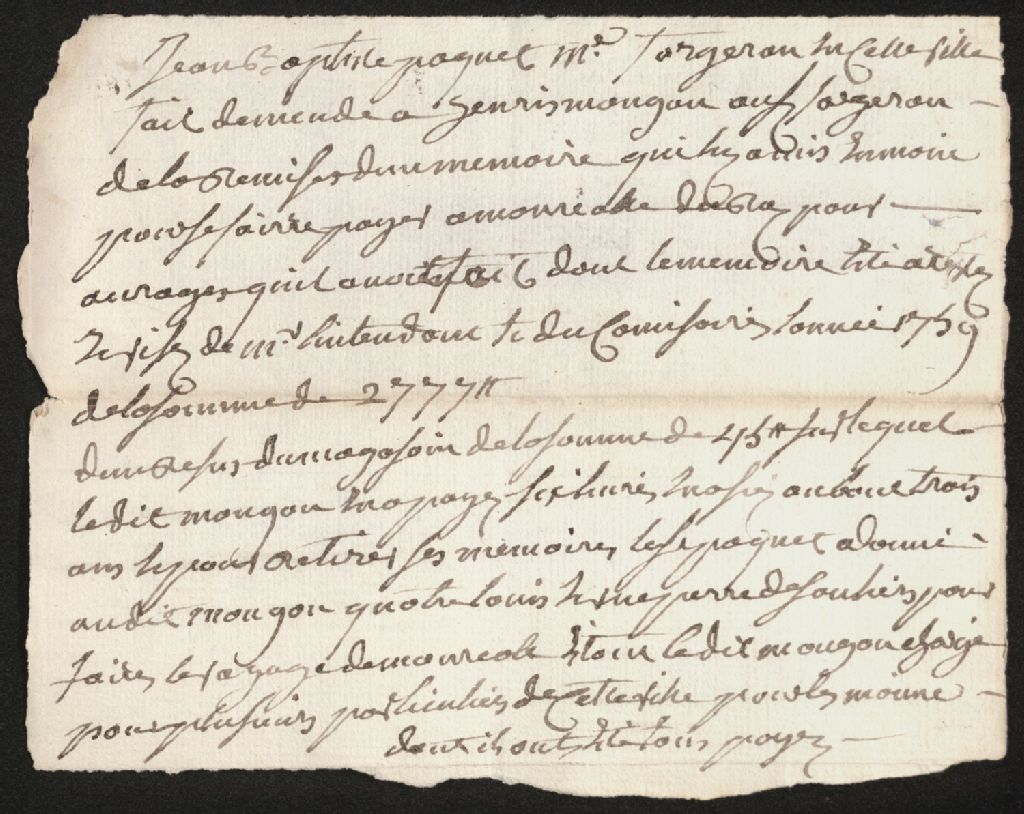 Jean Baptiste paquet me forgeron en Cette ville
fait demende a henris mongon ausy forgeron
de la Remise dun memoire quil luy a mis En main
pour se fairre payer a monrealle du Roy pour
ouvrages quil avoit fait dont le memoire Eté a
Et visé de mr lintendant Et du Comisaire lannée 1759
de la somme de 2777 #
dun Resus du magasain de la somme de sur lequel
le dit mongon En a payer six livres En asie au bout trois
ans Et pour Retirer ses memoires le sr paquet a donné
au dit mongon quatre louis Et une perre de souliers pour
faire le voyage de monreale Etant le dit mongon charge
pour plusieurs particuliers de Cette ville pour le meme
dont ils ont Eté tous payer